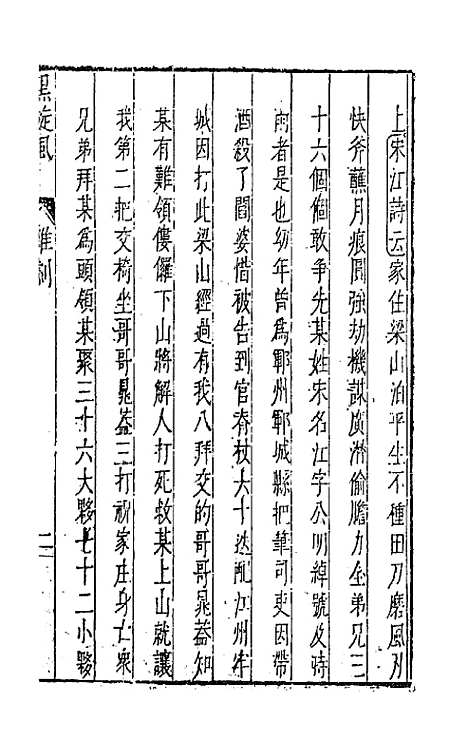 上宋江詩云家住梁山泊平生不種田刀磨風刃
快斧蘸月痕圓強劫機謀廣潛偷膽力全弟兄三
十六個個敢爭先某姓宋名江字公明綽號及時
雨者是也幼年曾爲鄆州鄆城縣把筆司吏因帶
酒殺了閻婆惜被告到官脊杖六十迭配江州牢
城因打此梁山經過有我八拜交的哥哥晁蓋知
某有難領僂儸下山將解人打死救某上山就讓
我第二把交椅坐哥哥晁蓋三打祝家庄身亡衆
兄弟拜某爲頭領某聚三十六大夥七十二小夥
黑旋風 雜劇 二